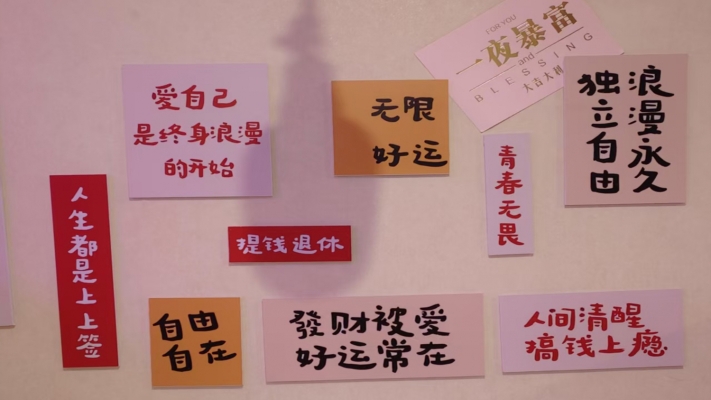 愛自己
是终身浪漫
的开始
无限
好运
FOR YOU
一夜暴富
and
BLESSING
大吉大
浪漫永久
独立自由
青春无畏
人生都是上上签
提钱退休
自由
自在
發财被爱
好运常在
人间清醒
搞钱上瘾